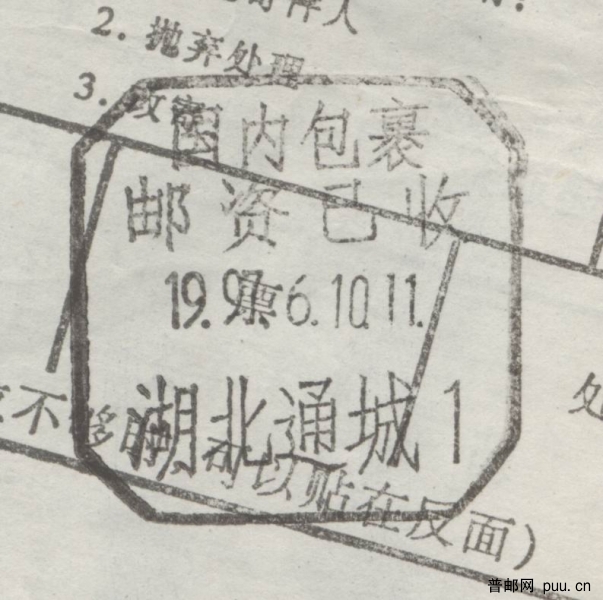 2. 抛弃处理
3. 改
国内包裹
邮资已收
19.97.6.10.11.
湖北通城1
不够 可以贴在反面)
处
普邮网 puu.cn